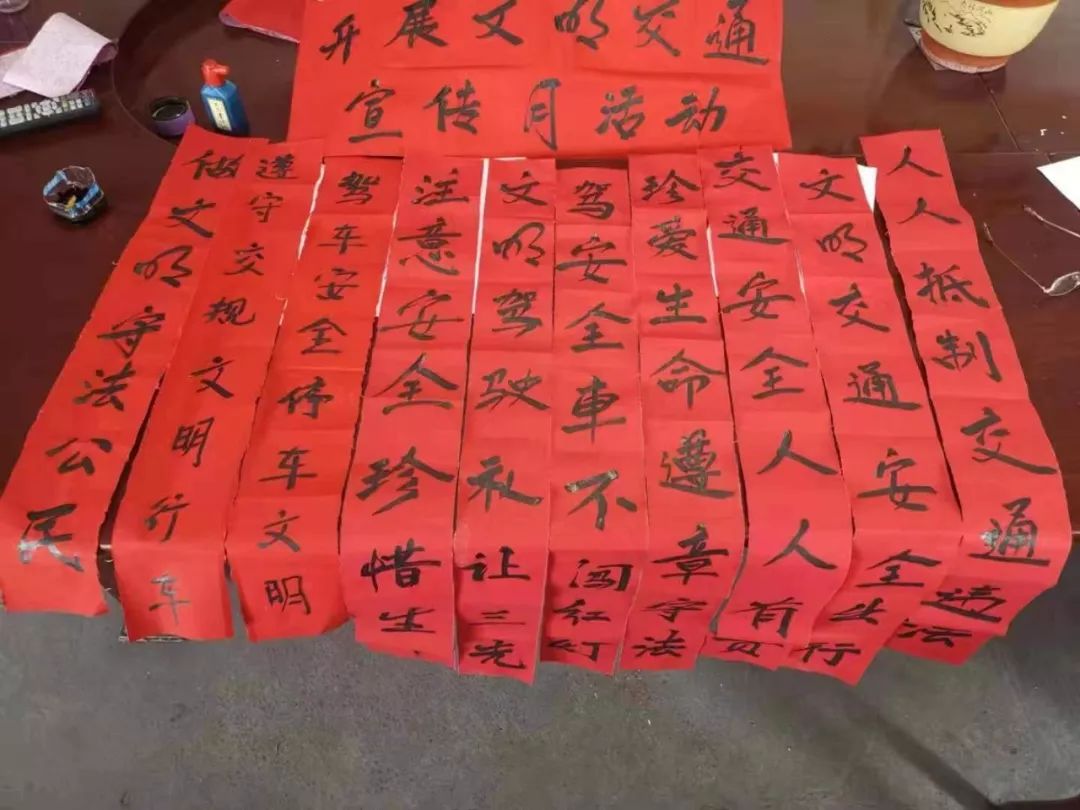 开展文明交通
宣传月活动
做文明守法公民
遵守交规文明行车
驾车安全停车文明
注意安全珍惜生
文明驾驶礼让三先
驾安全車不闯红灯
珍爱生命遵章守法
交通安全人人有
文明交通安全出行
人人抵制交通违法